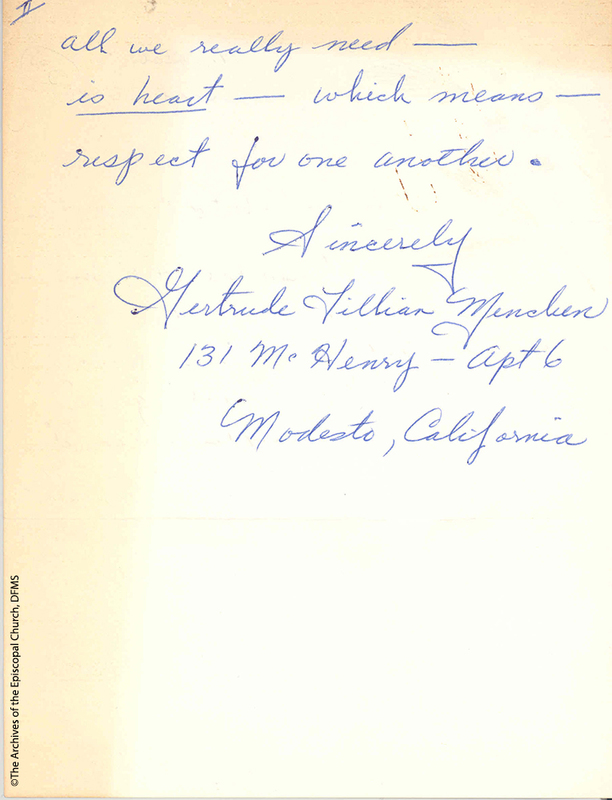 II
all we really need —
is heart — which means —
respect for one another.
Sincerely
Gertrude Lillian Mencken
131 McHenry — Apt 6
Modesto, California
©The Archives of the Episcopal Church, DFMS